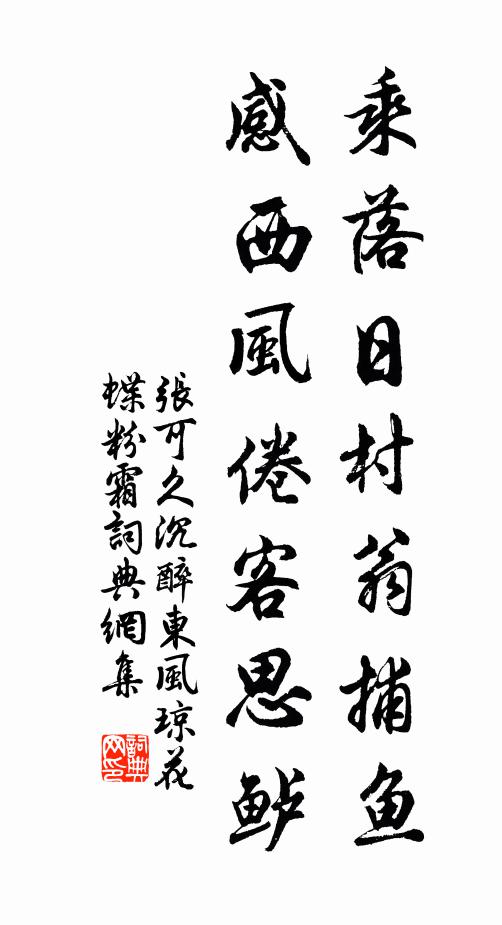 乘落日村翁捕鱼
感西風倦客思鲈
張可久沉醉東風琼花
蝶粉霜詞典網集
詞典
网印